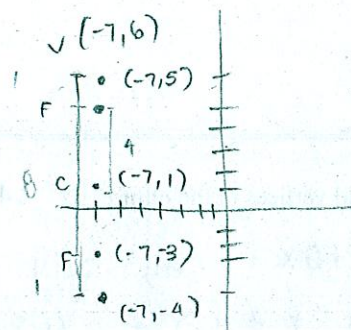 v (-7,6)
1 (-7,5)
F
4
8 C (-7,1)
F (-7,-3)
1 (-7,-4)